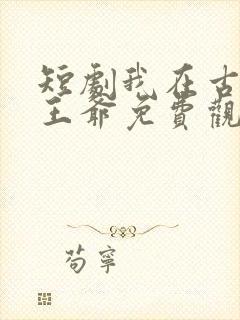 短劇我在古
王爺免費觀
苟寧